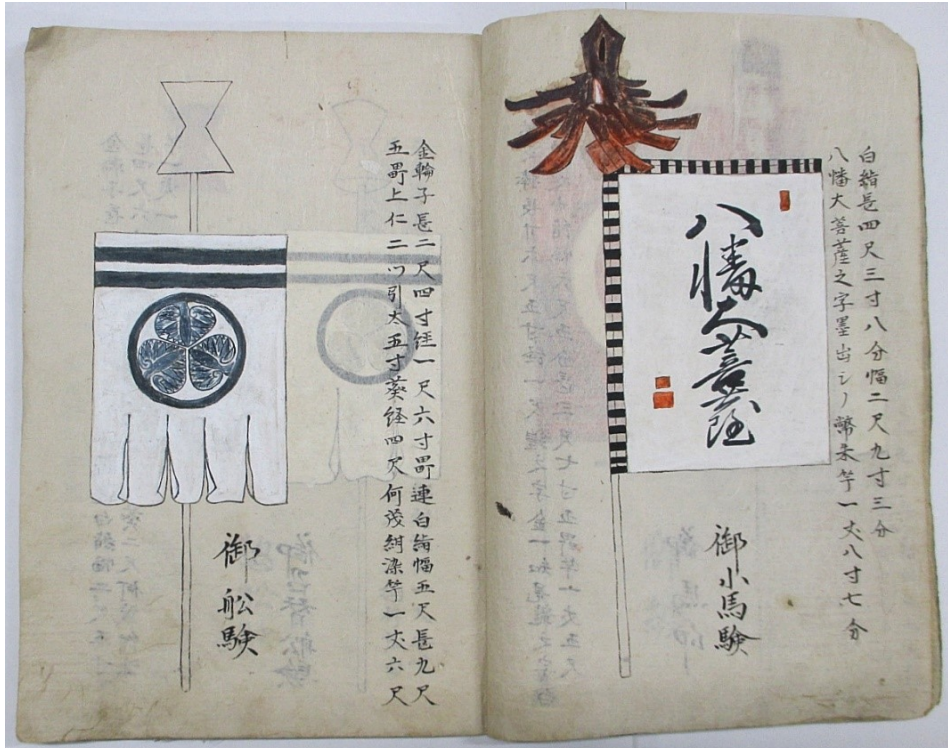 白絹長四尺三寸八分幅二尺九寸三分
八幡大菩薩之字墨出シノ幣朱竿一丈八寸七分
八幡大菩薩
御小馬験
金輪子長二尺四寸径一尺六寸 連白絹幅五尺長九尺
五 上仁二ツ引太五寸葵経四尺何茂紺染竿一丈六尺
御舩験